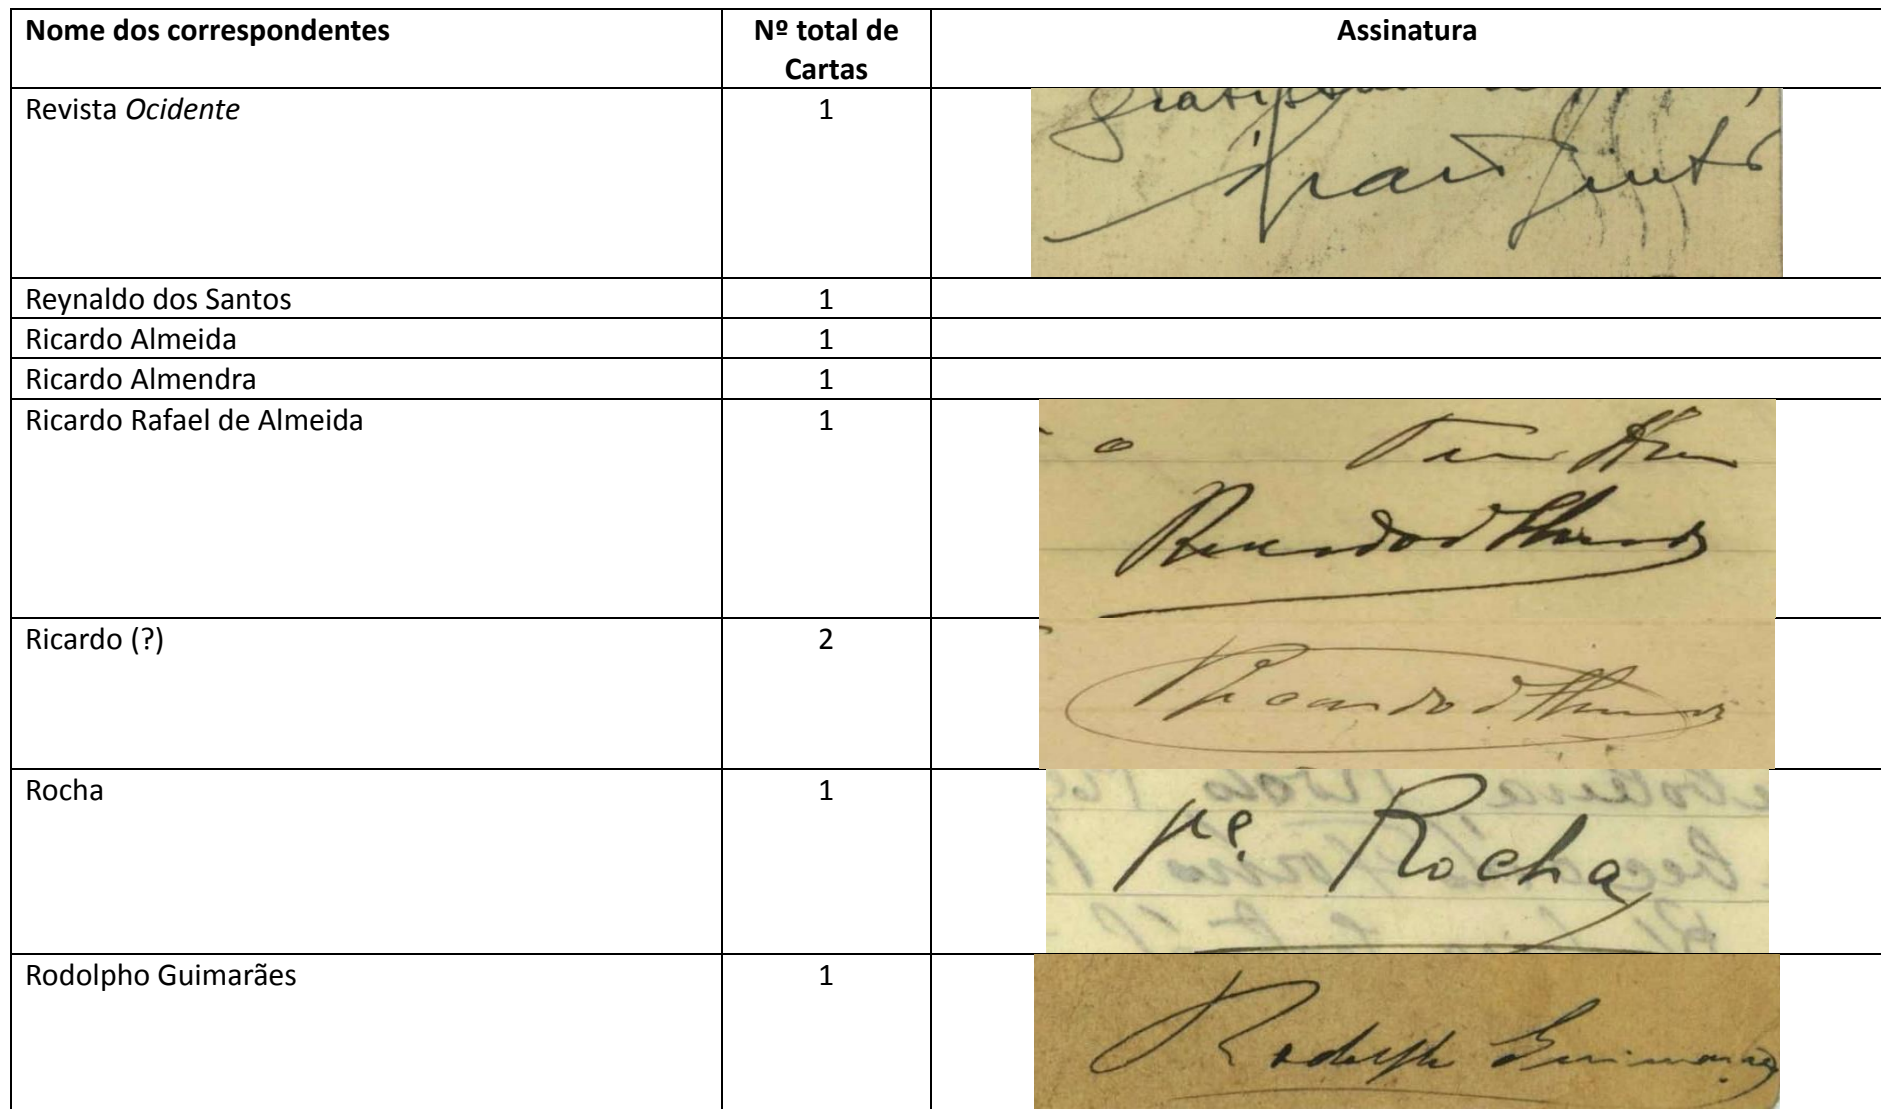 Nome dos correspondentes
Nº total de
Cartas
Assinatura
Revista Ocidente
1
Reynaldo dos Santos
1
Ricardo Almeida
1
Ricardo Almendra
1
Ricardo Rafael de Almeida
1
Ricardo (?)
2
Ricardo d'
Rocha
1
Pe. Rocha
Rodolpho Guimarães
1
Rodolpho Guimarães